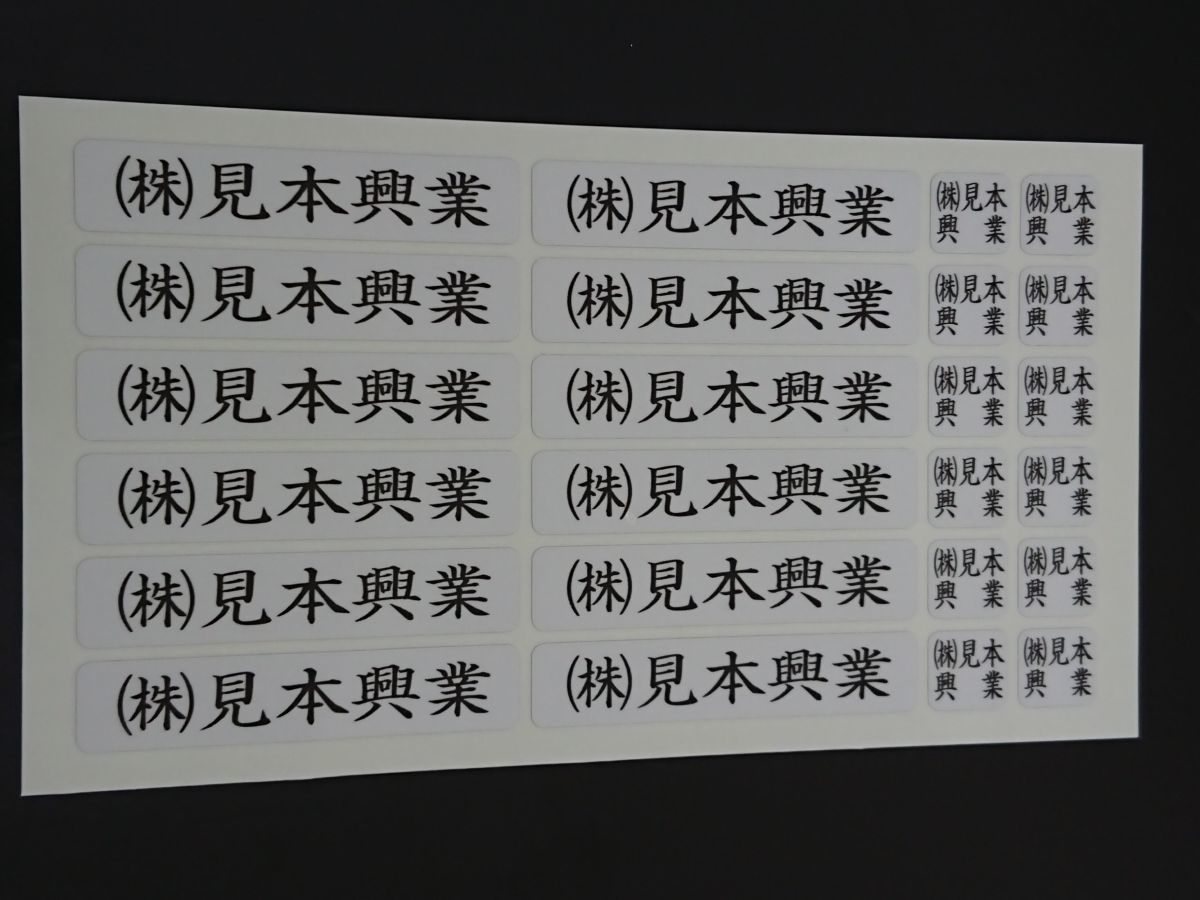 ㈱見本興業 ㈱見本興業 ㈱見本 ㈱見本
興業 興業
㈱見本興業 ㈱見本興業 ㈱見本 ㈱見本
興業 興業
㈱見本興業 ㈱見本興業 ㈱見本 ㈱見本
興業 興業
㈱見本興業 ㈱見本興業 ㈱見本 ㈱見本
興業 興業
㈱見本興業 ㈱見本興業 ㈱見本 ㈱見本
興業 興業
㈱見本興業 ㈱見本興業 ㈱見本 ㈱見本
興業 興業